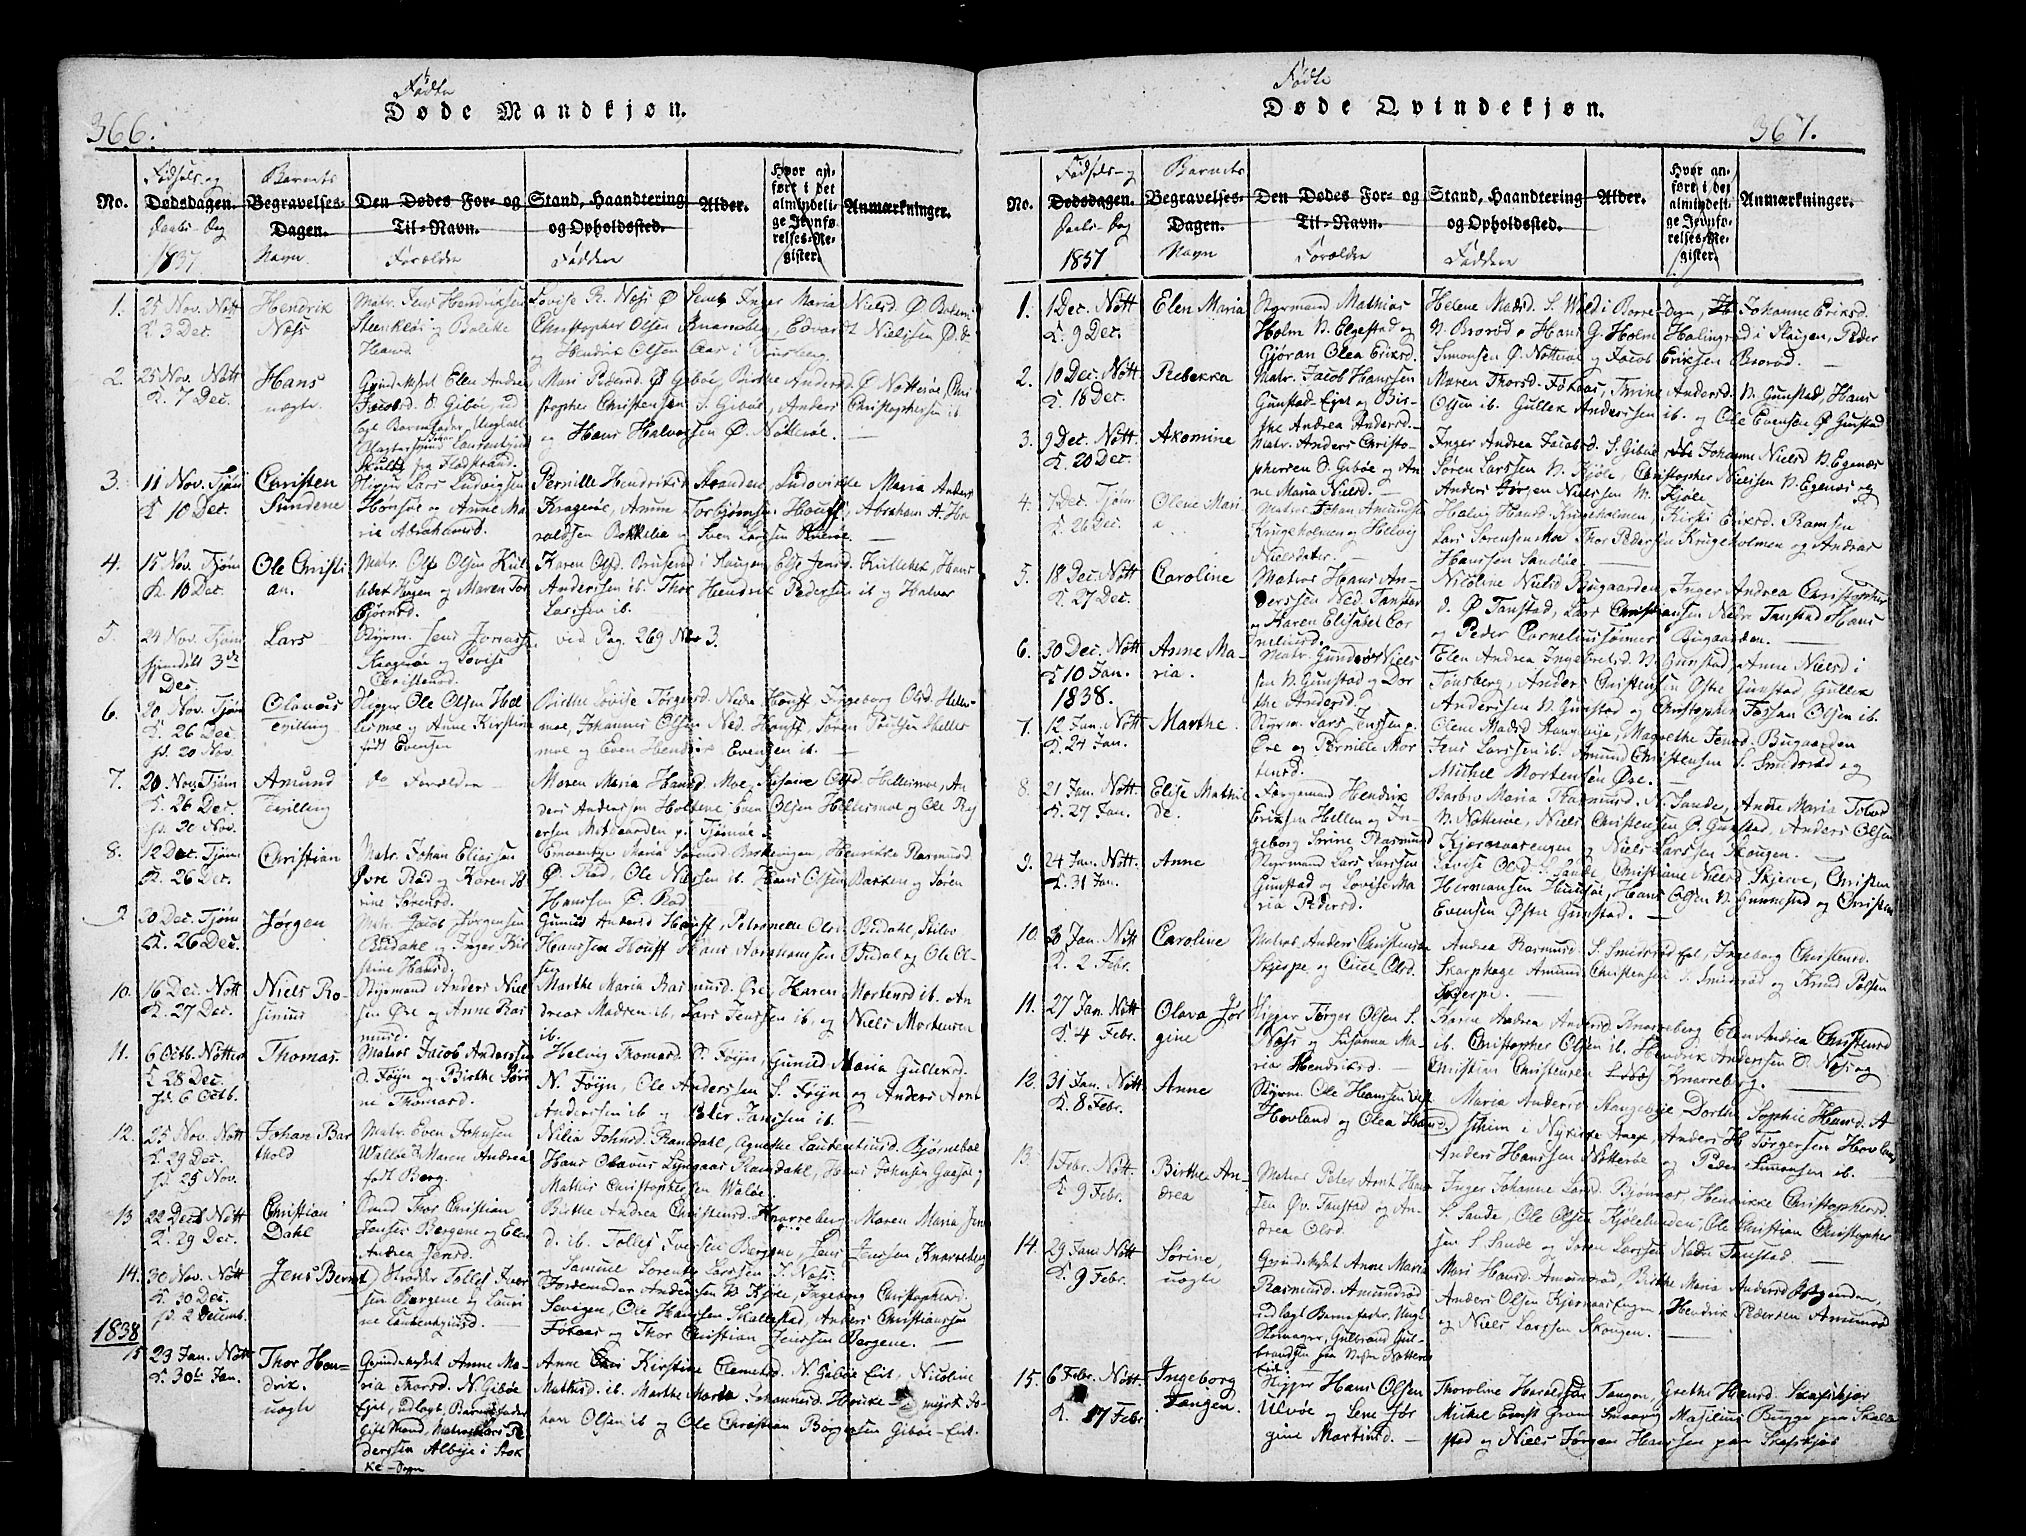 366.
Fødte
Døde Mandkjøn.
No.
Fødsels- og
Dødsdagen.
Daabs-Dag
1837
Barnets
Begravelses-
Dagen.
Navn
Den Dødes For- og
Til-Navn.
Forældre
Stand, Haandtering
og Opholdssted.
Faddere
Alder.
Hvor an-
ført i det
almindeli-
ge Jevnfø-
relses-Re-
gister.
Anmærkninger.
1.
25 Nov. Nøtt
D. 3 Dec.
Hendrik
Næss
Matr. Jens Hendriksen
Steenkløs og Bolette
Hansd.
Lovise R. Næss Ø
Christopher Olsen Knarreberg, Edvar
og Hendrik Olsen Aas i Tunsberg.
2.
25 Nov. Nøtt
D. 7 Dec.
Hans
uægte.
Jacobsd. S. Gibøe, ud
lagt Barnefader, Ungkarl
fra Fladstrand.
Mari Pedersd. Ø Gibøe, Birthe Andersd. Ø Nøtterøe, Chri
stopher Christensen S. Gibøe, Anders Christophersen ib
og Hans Halvorsen Ø. Nøtterøe.
3.
11 Nov. Tjøm
D. 10 Dec.
Christen
Sundene
Higgr. Lars Ludvigsen
Hønsøe og Anne Ma
ria Abrahamsd.
Pernille Hendriksd. Sundene, Ludovikke Maria Anders
Kragerøe, Amun Torbjørnsen Houff, Abraham A. Ha
raldsen Bokkelia og Sven Larssen
4.
15 Nov. Tjøm
D. 10 Dec.
Ole Christi
an.
Matr. Ole Olsen Kul
lebek Haugen og Maren Tor
bjørnsd.
Karen Olsd. Bruserød i Haugen, Else Jensd. Kullebek, Hans
Anderssen ib. Thor Hendrik Pedersen ib og Halvor
Larssen ib.
5.
24 Nov. Tjøm
hjemdøbt 3de
Dec.
Lars
Styrm. Jens Jonassen
Kragerøe og Lovise
Christensd.
vid Pag. 269 No 3.
6.
20 Nov. Tjøm
D. 26 Dec.
hd. 20 Nov.
Olaves
Tvilling
Higgr. Ole Olsen Hel
lesmoe og Anne Kirstine
født Evensen
Birthe Lovise Jørgensd. Nedre Houff Ingeborg Olsd. Helles
moe, Johannes Olsen Ned. Houff, Søren Poulsen Helles
moe og Even Hendrik Evensen ib.
7.
20 Nov. Tjøm
D. 26 Dec.
hd. 20 Nov.
Amund
Tvilling
do Forældre
Maren Maria Hansd. Moe, Susanne Olsd. Hellesmoe, An
ders Anderssen Holtene, Even Olsen Hellesmoe og Ole Rey
ersen Matgaarden p. Tjømøe.
8.
12 Dec. Tjøm
D. 26 Dec.
Christian
Matr. Johan Eliassen
Øvre Rød og Karen So
rine Sørensd.
Emerentse Maria Sørensd. Berkevigen, Henrikke Rasmusd
Ø. Rød, Ole Nilssen ib. Hans Olsen Barken og Søren
Hanssen Ø. Rød
9
20 Dec. Tjøm
D. 26 Dec.
Jørgen
Matr. Jacob Jørgensen
Budahl og Inger Kir
stine Hansd.
Gunild Andersd Houff, Petronelle Olsd. Budahl, Nils
Hanssen Houff Hans Abrahamsen Budal og Ole Ol
sen
10.
16 Dec. Nøtt
D. 27 Dec.
Niels Ro-
sinius
Styrmand Anders Niel
sen Øre og Anne Ras
musd.
Marthe Maria Rasmusd. Øre, Karen Mortensd ib. An
dreas Madsen ib, Lars Jenssen ib, og Niels Mortensen
ib.
11.
6 Octb. Nøtter
D. 28 Dec.
hd. 6 Octb.
Thomas.
Matros Jacob Anderssen
S. Føyn og Birthe Søri
ne Thomasd.
Helvig Thomasd. S. Føyn, Gunild Maria Gulleksd.
N. Føyn, Ole Anderssen S. Føyn og Anders Arnt
Anderssen ib og Peter Janssen ib.
12.
25 Nov. Nøtt
D. 29 Dec.
hd. 25 Nov.
Johan Bar
thold
Matr. Even Johnsen
Walløe & Maren Andrea
født Berg.
Nilia Johnsd. Ramdahl, Agnethe Laurentiusd. Bjørnebol
Hans Olavus Lyngaas Ramdahl, Hans Johnsen Gaasøe og
Mathis Christophersen Waløe.
13
22 Dec Nøtt
D. 29 Dec.
Christian
Dahl
Thor Christian
Jensen Bergene og Elen
Andrea Jensd.
Birthe Andrea Christensd. Knarreberg, Maren Maria Jens
d. ib. Tolles Iversen Bergene, Jens Jenssen Knarreberg
og Samuel Sørentz Larssen S. Næss.
14.
30 Nov. Nøtt
D. 30 Dec.
hd. 2 Decemb.
Jens Bernt
Tolles Iver
sen Bergene og Lauri
ne Laurentiusd.
Jordemoder Anderssen N Kjøle, Ingeborg Christophersd.
Sevigen, Ole Hanssen Skallestad, Anders Christianssen
Føkaas og Thor Christian Jenssen Bergene.
1838
15
23 Jan. Nøtt
D. 30te Jan.
Thor Hen-
drik.
uægte
Grindskyst Anne Ma-
ria Thorsd. N. Gibøe
Ejet, udlagt, Barnefader
Gift Mand, Matros Lars Pe
derssen Albye i Stok
ke-Sogn
Anne Kirstine Clemetsd. N. Gibøe Eit, Nicoline
Mathisd. ib. Marthe Maria Johannesd. Jo-
han Olsen ib og Ole Christian Borgersen Gibøe-Eit.
367.
Fødte
Døde Qvindekjøn.
No.
Fødsels- og
Dødsdagen.
Daabs-Dag
1837
Barnets
Begravelses-
Dagen.
Navn
Den Dødes For- og
Til-Navn.
Forældre
Stand, Haandtering
og Opholdssted.
Faddere
Alder.
Hvor an-
ført i det
almindeli-
ge Jevnfø-
relses-Re-
gister.
Anmærkninger.
1.
1 Dec. Nøtt
D. 9 Dec.
Elen Maria
Styrmand Mathias
Holm N. Elgestad og
Gjøran Olea Eriksd.
Helene Madsd. S. Wold i Borre-Sogn, Johanne Eriksd.
N. Brorød, Hans G. Holm Holingrød i Slagen, Peder
Simonsen Ø. Nøtterøe og Jacob Eriksen Brorød.
2.
10 Dec. Nøtt
D. 18 Dec.
Rebekka
Matr. Jacob Hanssen
Gunstad-Ejet og Bir-
the Andrea Andersd.
Maren Thorsd. Føkaas, Trine Andersd. N. Gunstad, Hans
Olsen ib. Gullek Anderssen ib. og Ole Evensen Ø Gunstad
3.
9 Dec. Nøtt
D. 20 Dec.
Akomine
Matr. Anders Christo-
phersen S. Gibøe og An-
ne Maria Nielsd.
Inger Andrea Jacobsd. S. Gibøe, Johanne Nielsd N. Egenæs
Søren Larssen N. Kjøle, Christopher Nielsen N. Egenæs og
Anders Jørgen Nielssen N. Kjøle
4.
7 Dec. Tjøm
D. 26 Dec.
Olene Mari
a
Matros Johan Amundsen
Krugeholmen og Helvig
Nielsdatter.
Halvig Hansd. Krugeholmen, Kirsti Eriksd. Ramsen
Lars Sørensen Moe Thor Pedersen Krugeholmen og Andreas
Hanssen Sandøe
5.
18 Dec. Nøtt
D. 27 Dec.
Caroline
Matros Hans An-
derssen Ned. Tanstad
og Karen Elisabet Cor
neliusd.
Nicoline Nielsd Bugaarden, Inger Andrea Christopher
d. Ø Tanstad, Lars Christiansen Nedre Tanstad Hans
og Peder Corneliussønner Bugaarden.
6.
30 Dec. Nøtt
D 10 Jan.
1838.
Anne Ma-
ria.
Matr. Gundvor Niels
sen N. Gunstad og Dor
the Andersd.
Elen Andrea Ingebretsd. N. Gunstad, Anne Nielsd i
Tønsberg, Anders Christensen Østre Gunstad Gullek
Anderssen N. Gunstad og Christopher Tossan Olsen ib.
7.
12 Jan. Nøtt
D. 24 Jan.
Marthe.
Styrm. Lars Jenssen p.
Øre og Pernille Mor
tensd.
Olene Madsd Stangebye, Magrethe Jensd. Bugaarden
Jens Larssen ib. Amund Christensen S. Smidsrød og
Michel Mortensen Øre.
8.
21 Jan. Nøtt
D. 27 Jan.
Elise Mathil
de.
Færgemand Hendrik
Eriksen Hellen og In-
geborg Serine Rasmusd
Barbro Maria Rasmusd. N. Sande, Andre Maria Tolsd
N. Nøtterøe, Niels Christensen Ø. Gunstad, Anders Olsen
Kjørnaasengen og Niels Larssen Skougen.
9.
24 Jan. Nøtt.
D. 31 Jan.
Anne
Styrmand Lars Larssen
Gunstad og Lovise Ma
ria Pedersd.
Lovise Olsd. S. Sande, Christiane Nielsd Skjerve, Christen
Hermansen Husøe, Hans Olsen N. Gunnestad og Christen
Evensen Østre Gunstad.
10.
3 Jan. Nøtt
D. 2 Febr.
Caroline
Matros Anders Christensen
Skjerpe og Cicele Olsd.
Andrea Rasmusd. S. Smidsrød, Ingeborg Christensd.
Skarphage Amund Christensen S. Smidsrød og Knud Polsen
Skjerpe.
11.
27 Jan. Nøtt
D. 4 Febr.
Olava Jør
gine
Higgr Jørger Olsen S.
Næss og Susanna Ma
ria Hendriksd.
Karen Andrea Andersd. Knarreberg Elen Andrea Christensd
ib. Christopher Olsen ib. Hendrik Anderssen S. Næss og
Christian Christensen Knarreberg.
12.
31 Jan. Nøtt
D. 8 Febr.
Anne
Styrm. Ole Hanssen
Hovland og Olea Hansd.
Maria Andersd Stangebye Dorthe Sophie Hansd. A
schim i Nykirke Anex, Anders H. Jørgersen Hovland
Anders Hanssen Nøtterøe og Peder Simonsen ib.
13.
1 Febr. Nøtt.
D. 9 Febr.
Birthe An
drea
Matros Peter Arnt Hans
sen Øv. Tanstad og An
drea Olsd.
Inger Johanne Larsd. Bjørnæs Henrikke Christophersd.
S. Sande, Ole Olsen Kjølelunden, Ole Christian Christopher
sen S. Sande og Søren Larssen Nedr. Tanstad
14.
29 Jan Nøtt
D. 9 Febr.
Sørine,
uægte
Grindskyst Anne Maria
Rasmusd. Amundrød
udlagt Barnefader, Ung
Gulbrand Gul-
brandsen fra Vestre Nøtterøe
Mari Hansd. Amundrød, Birthe Maria Andersd
Anders Olsen Kjørnaas Engen, Hendrik Pedersen Amunrød
og Niels Larssen Skougen.
15.
6 Febr. Nøtt.
D. 17 Febr
Ingeborg
Tangen.
Higgr Hans Olsen
Ulvøe og Lene Jør
gine Martinsd.
Thoroline Haraldsen Tangen, Grethe Hansd. Skafskjær
Mikel Ernst Grøm Smaavig Matilius Bugge paa Skalle
stad og Niels Jørgen Hanssen paa Skafskjær